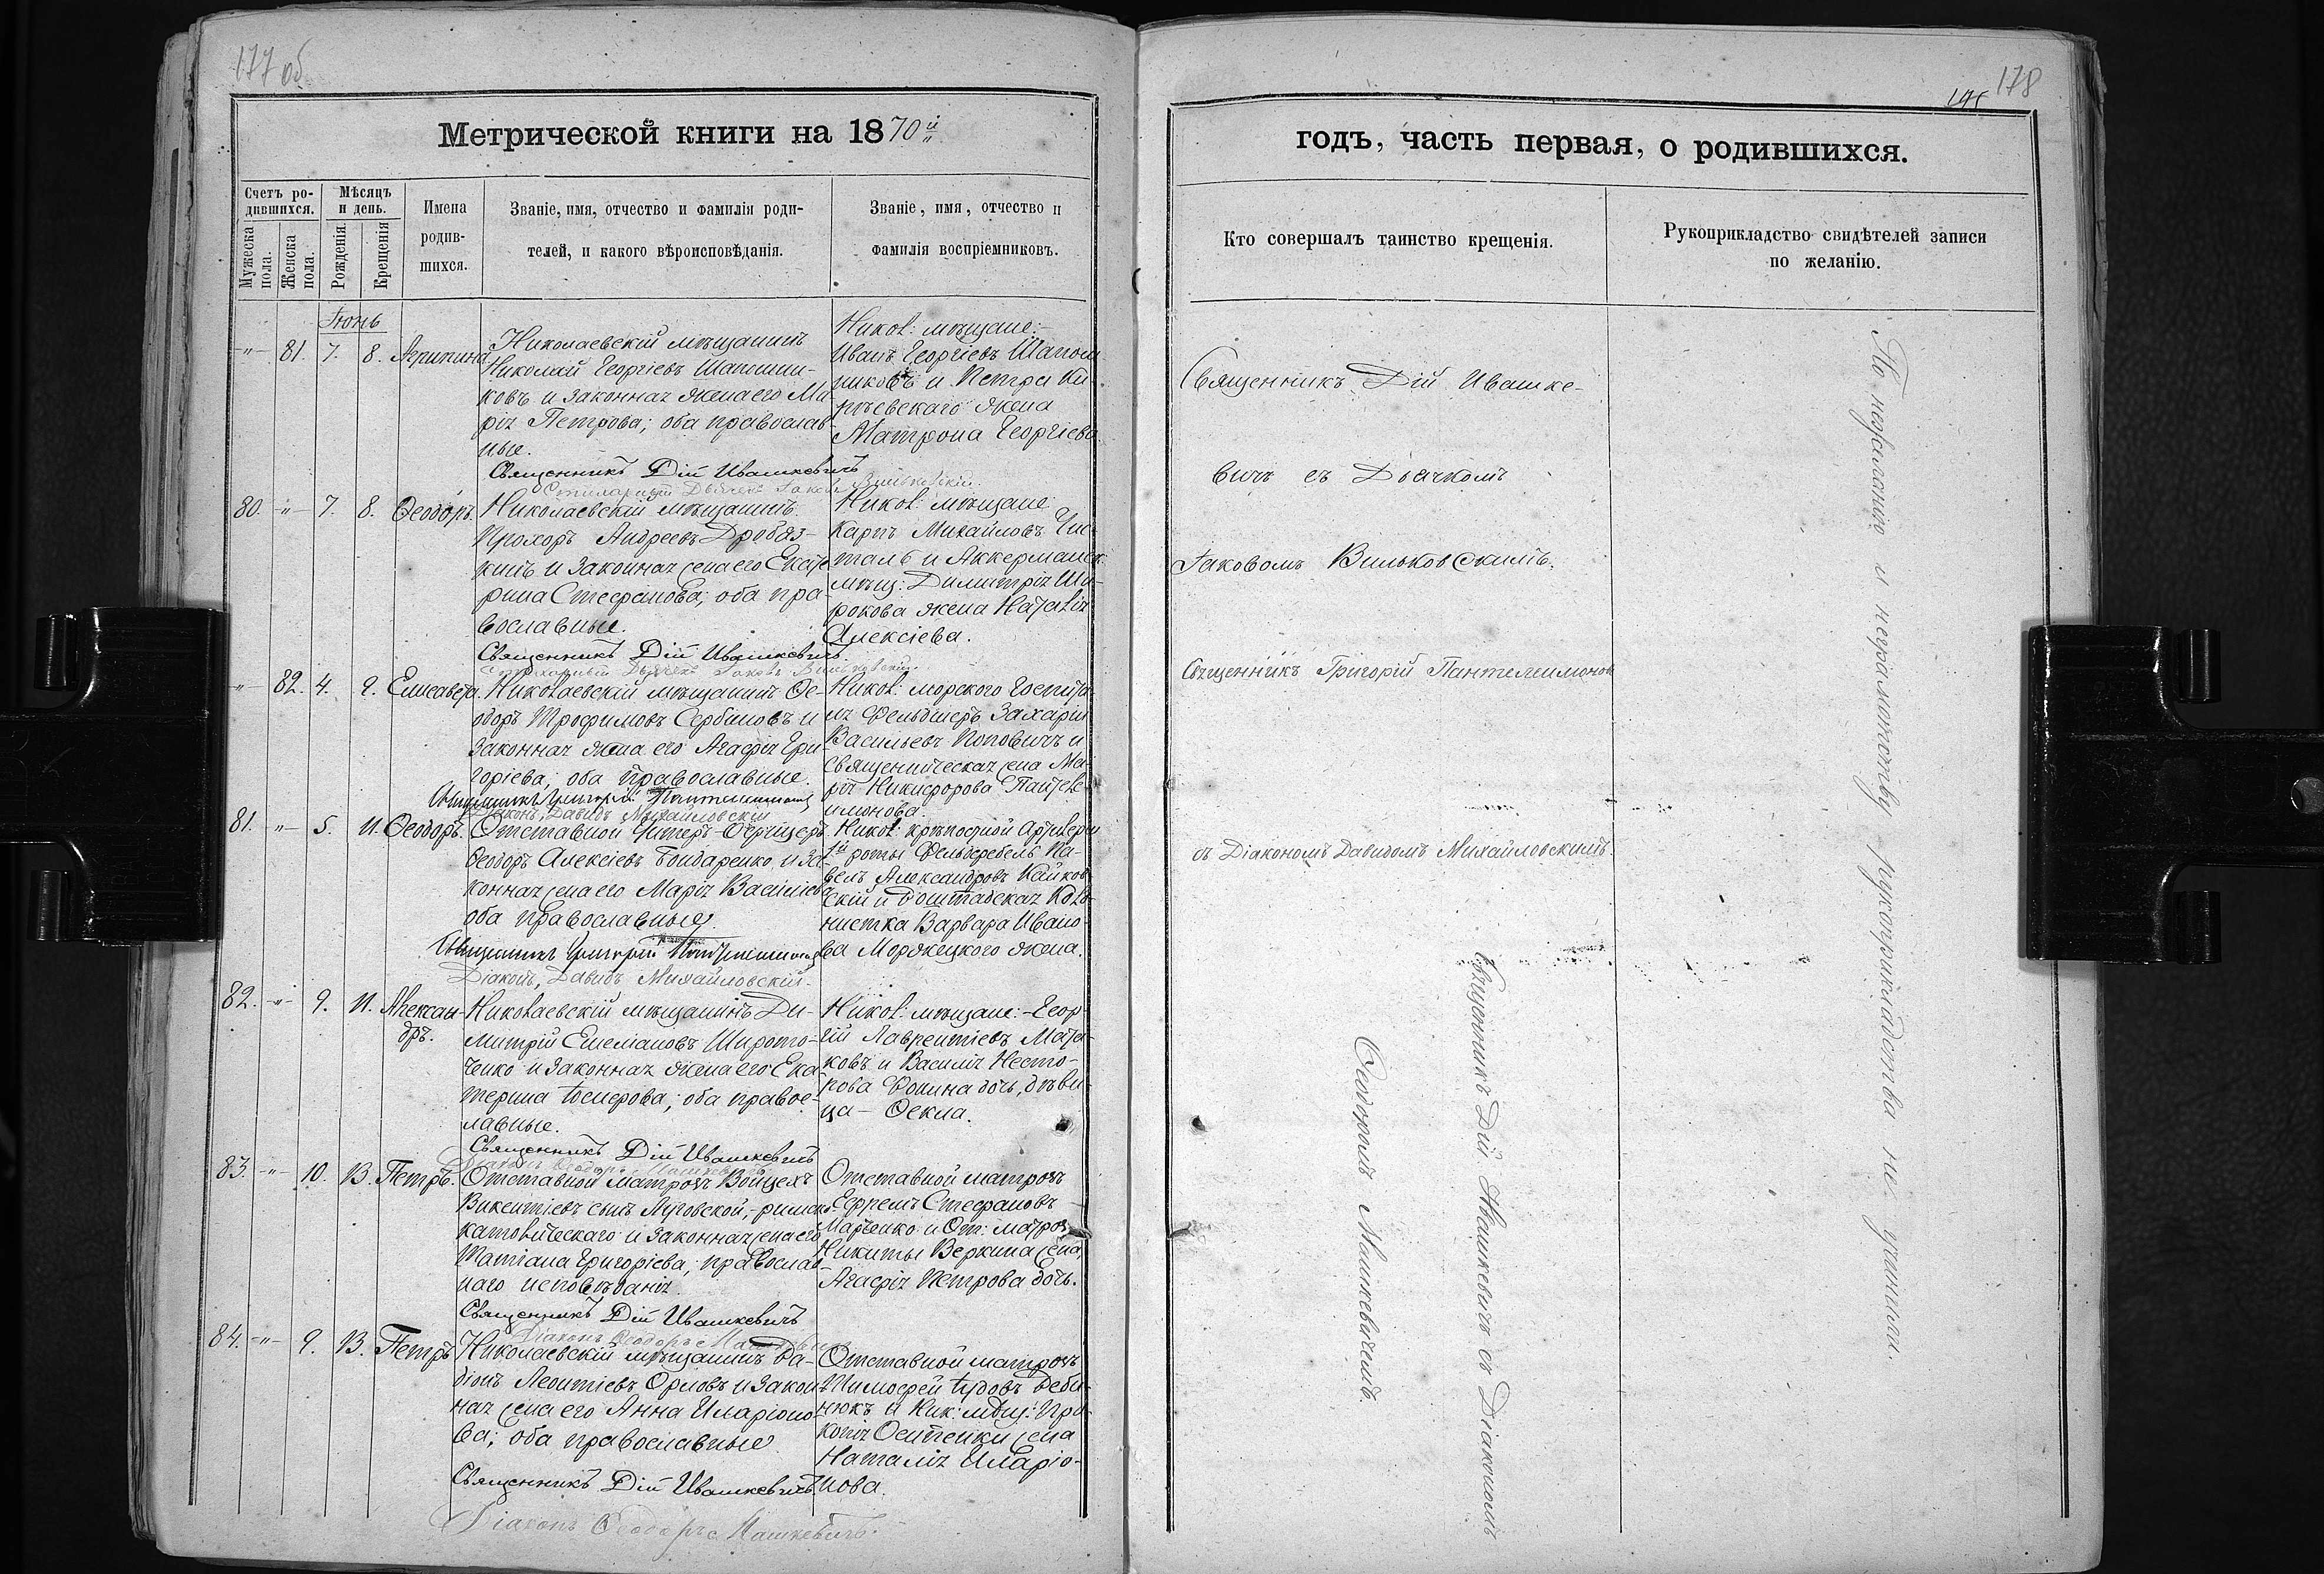 177 об
Метрической книги на 1870й
Счетъ ро-
дившихся.
Мужеска пола.
Женска пола.
Мѣсяцъ
и день.
Рожденія.
Крещенія.
Имена
родив-
шихся.
Званіе, имя, отчество и фамилія роди-
телей, и какого вѣроисповѣданія.
Званіе, имя, отчество и
фамилія воспріемниковъ.
Іюнь
-"- 81. 7. 8. Агрипина
Николаевскій мѣщанинъ
Николай Георгіевъ Шапошни-
ковъ и законная жена его Ма
рія Петрова; оба православ
ные.
Священникъ Дій Ивашкевичъ
Дьячекъ Іаковъ Вильковскій.
Никол: мѣщане:-
Иванъ Георгіевъ Шапош
никовъ и Петра
жена
Матрона Георгіева
80. -"- 7. 8. Ѳеодоръ.
Николаевскій мѣщанинъ
Прохоръ Андреевъ Дробяз-
кинъ и законная жена его Екате
рина Стефанова; оба пра-
вославные.
Священникъ Дій Ивашкевичъ
Дьячекъ Іаковъ Вильковскій.
Никол: мѣщане
Карпъ Михайловъ Чис-
таль и Аккерманск:
мѣщ: Димитрія Ши-
рокова жена Наталія
Алексіева.
-"- 82. 4. 9. Елисавета.
Николаевскій мѣщанинъ Ѳе-
одоръ Трофимовъ Сербиновъ и
законная жена его Агафія Гри-
горіева; оба православные.
Священникъ Григорій Пантелеимоновъ
Діаконъ, Давидъ Михайловскій
Никол: морского госпита
ля Фельдшеръ Захарій
Васильевъ Поповичъ и
священническая жена Ма
рія Никифорова Пантеле-
имонова.
81. -"- 5. 11. Ѳеодоръ.
Отставной Унтеръ-Офицеръ
Ѳеодоръ Алексіевъ Бондаренко и за-
конная жена его Марія Васильева
оба православные.
Священникъ Григорій Пантелеимоновъ
Діаконъ, Давидъ Михайловскій.
Никол: крѣпостной Артилери
1й роты Фельдфебель Па-
велъ Александровъ
скій и коло-
нистка Варвара Ивано-
ва Моржецкого жена.
82. -"- 9. 11. Александръ.
Николаевскій мѣщанинъ Ди-
митрій Емеліановъ Широто-
ченко и законная жена его Ека-
терина; оба правос-
лавные.
Священникъ Дій Ивашкевичъ
Діаконъ Ѳеодоръ Машкевичъ
Никол: мѣщане:- Геор
гій Лаврентіевъ Мата-
ковъ и Василія Несто-
рова Фомина дочь, дѣви
ца - Ѳекла.
83. -"- 10. 13. Петръ.
Отставной матрозъ Войцехъ
Викентіевъ сынъ Луговской, римско
католическаго и законная жена его
Татіана Григоріева, православ-
наго исповѣданія.
Священникъ Дій Ивашкевичъ
Діаконъ Ѳеодоръ Машкевичъ
Отставной матрозъ
Ефремъ Стефановъ
Марченко и От: матроз
Никиты Веркина жена
Агафія Петрова дочь.
84. -"- 9. 13. Петръ
Николаевскій мѣщанинъ Ра-
діонъ Леонтіевъ Орловъ и закон
ная жена его Анна Иларіоно-
ва; оба православные
Священникъ Дій Ивашкевичъ
Діаконъ Ѳеодоръ Машкевичъ.
Отставной матрозъ
Тимофей Іудовъ Деби-
нюкъ и Ник: мѣщ: Про
копія жена
Наталія Иларіо-
нова.
178
годъ, часть первая, о родившихся.
Кто совершалъ таинство крещенія.
Рукоприкладство свидѣтелей записи
по желанію.
Священникъ Дій Ивашке-
вичъ съ Дьячкомъ
Іаковомъ Вильковскимъ.
Священникъ Григорій Пантелеимоновъ
съ Діакономъ Давидомъ Михайловскимъ.
Священникъ Дій Ивашкевичъ съ Діакономъ
Ѳеодоромъ Машкевичемъ.
По нежеланію и неграмотству рукоприкладства не учинили.